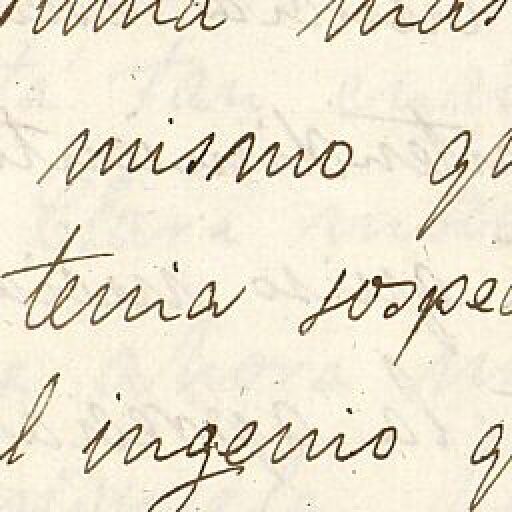 mas
mismo qu
tenia sospec
l ingenio q